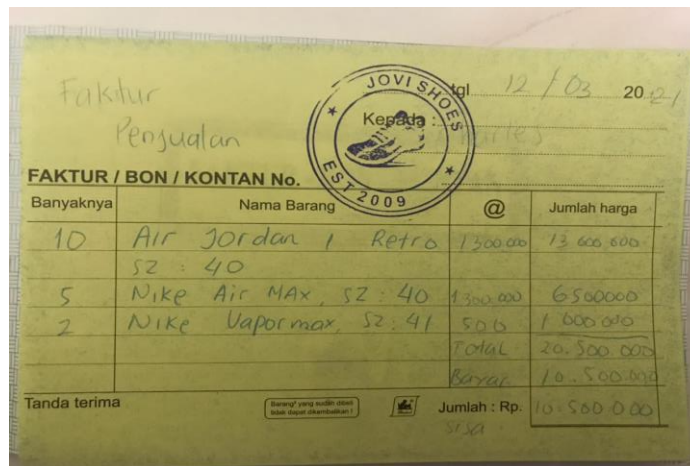 Faktur
Penjualan
JOVI SHOES
EST 2009
tgl 12 / 03 2021
Kepada : Charles
FAKTUR / BON / KONTAN No.
Banyaknya Nama Barang @ Jumlah harga
10 Air Jordan 1 Retro 1300.000 13 000 000
SZ : 40
5 Nike Air MAx, SZ : 40 1300.000 6500000
2 Nike Vapormax, SZ : 41 500 1 000 000
Total 20.500.000
Bayar 10.500.000
Tanda terima Barang² yang sudah dibeli tidak dapat dikembalikan ! Jumlah : Rp. 10.500 000
sisa